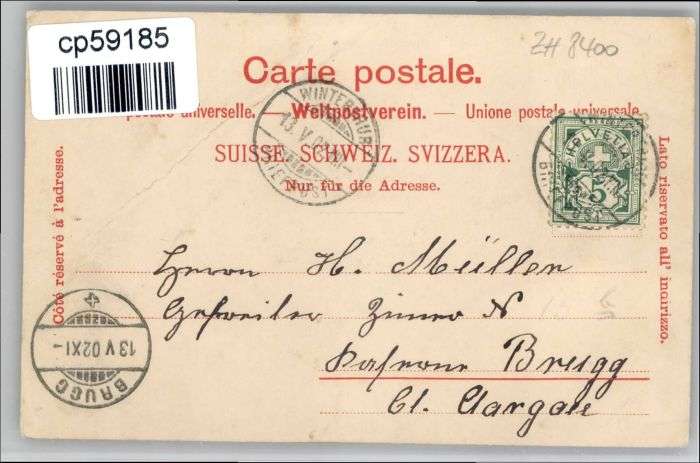 cp59185
ZH 8400
Carte postale.
postale universelle. — Weltpostverein. — Unione postale universale
SUISSE. SCHWEIZ. SVIZZERA.
Nur für die Adresse.
Côté réservé à l'adresse.
Lato riservato all' indirizzo.
WINTERTHUR
13. V. 02
BRIEFPOST
HELVETIA
5
Herrn H. Müller
Gefreiter Zimmer N
Kaserne Brugg
Ct. Aargau
BRUGG
13 V 02 XI